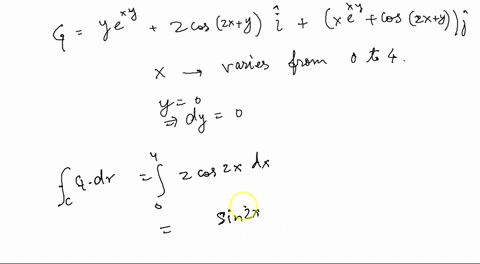 G = ye^{xy} + 2 cos(2x+y) î + (xe^{xy} + cos(2x+y)) ĵ
x → varies from 0 to 4.
y = 0
⇒ dy = 0
∫_C G·dr = ∫_0^4 2 cos 2x dx
= sin 2x